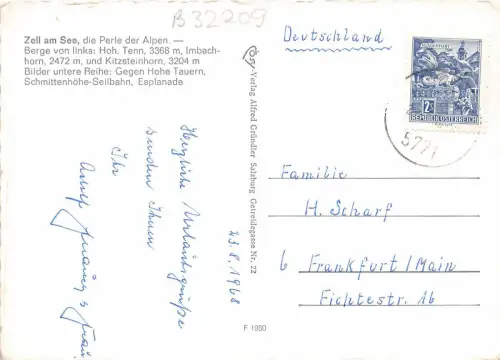 B 32209
Zell am See, die Perle der Alpen. —
Berge von links: Hoh. Tenn, 3368 m, Imbach-
horn, 2472 m, und Kitzsteinhorn, 3204 m
Bilder untere Reihe: Gegen Hohe Tauern,
Schmittenhöhe-Seilbahn, Esplanade
23.8.1968
Herzliche Urlaubsgrüße
senden Ihnen
Ihr
u. Frau
Verlag Alfred Gründler Salzburg Getreidegasse Nr. 22
F 1980
Deutschland
2.50
REPUBLIK ÖSTERREICH
5721
Familie
H. Scharf
6 Frankfurt/Main
Fichtestr. 16